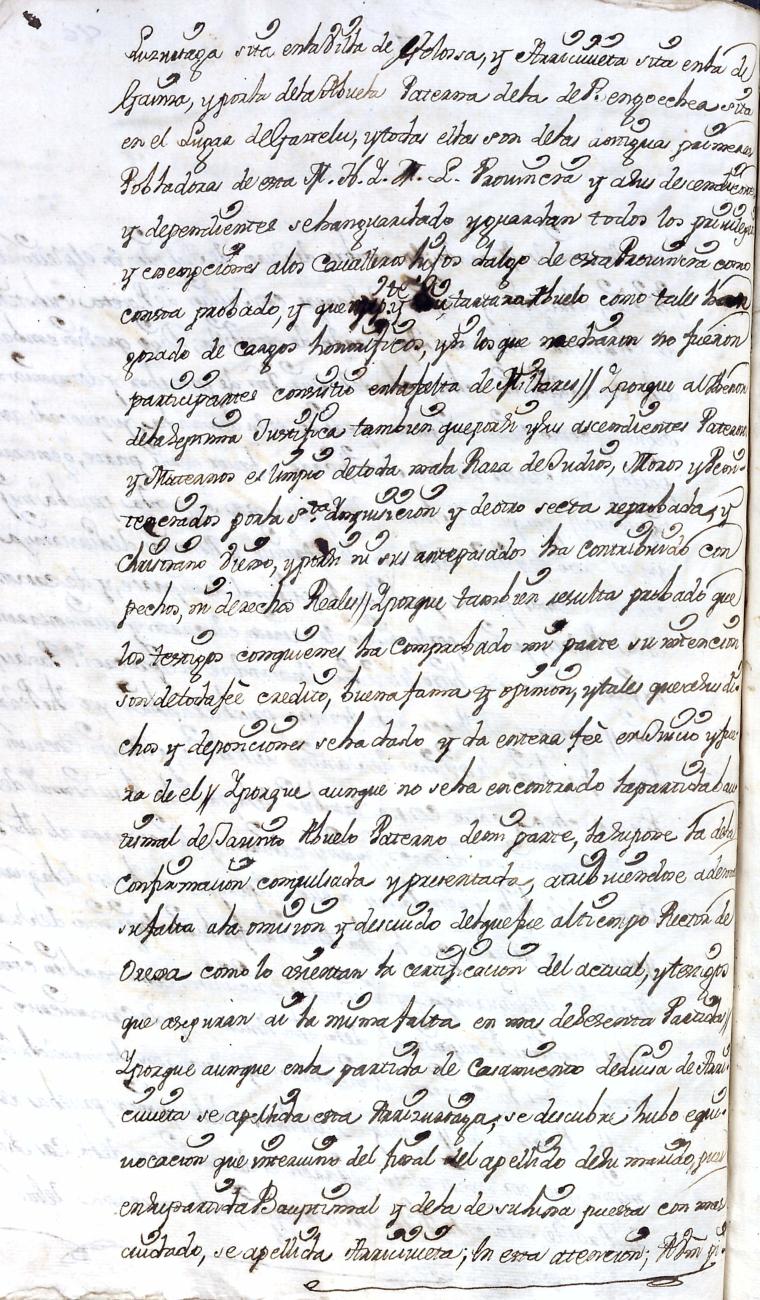 sita enla Villa de Tolossa, y Arricivieta sita enla de
Gainza, y porla dela Abuela Paterna dela de Perugoechea sita
en el Lugar de Gazzelu, y todas ellas son delas antiguas primeras
Pobladoras de esta M. N. y M. L. Provincia y a sus descendientes
y dependientes sehanguardado y guardan todos los privilegios
y exempciones alos Cavalleros hijos dalgo de esta Provincia como
consta probado, y que mi pte. y su tartara Abuelo como tales han
gozado de cargos honorificos, y si los que no fueron
participantes consistio enla falta de Millares// Yporque al thenor
dela septima Justifica tambien queporsi y sus ascendientes Paternos
y Maternos es limpio detoda mala Raza de Judios, Moros y Peni-
tenciados porla Sta. Inquisicion y deotro secta reprobada, y
Christiano viexo, y porsi ni sus antepasados ha contribuido con
pechos, ni derechos Reales// Yporque tambien resulta probado que
los testigos conquienes ha comprobado mi parte su intencion
son detoda feè credito, buena fama y opinion, y tales que asus di-
chos y deposiciones sehadado y da entera feè en Juicio y fue-
ra de el// Yporque aunque no seha encontrado lapartida bau-
tismal de Jacinto Abuelo Paterno demi parte, la supone la dela
confirmacion compulsada y presentada, atribuiendose ademas
su falta ala omision y descuido delquefue altiempo Rector de
Orexa como lo asientan la certificacion del actual, y testigos
que aseguran ai la misma falta en mas desesenta Partidas//
Yporque aunque enla partida de Casamiento deLuisa de Arri-
civieta se apellida esta Arrizurtaga, se descubre hubo equi-
vocacion que intervino del final del apellido desu marido, pues
ensupartida Bauptismal y dela de suhija puesta con mas
cuidado, se apellida Arricivieta; En esta atencion; A Vm pi-